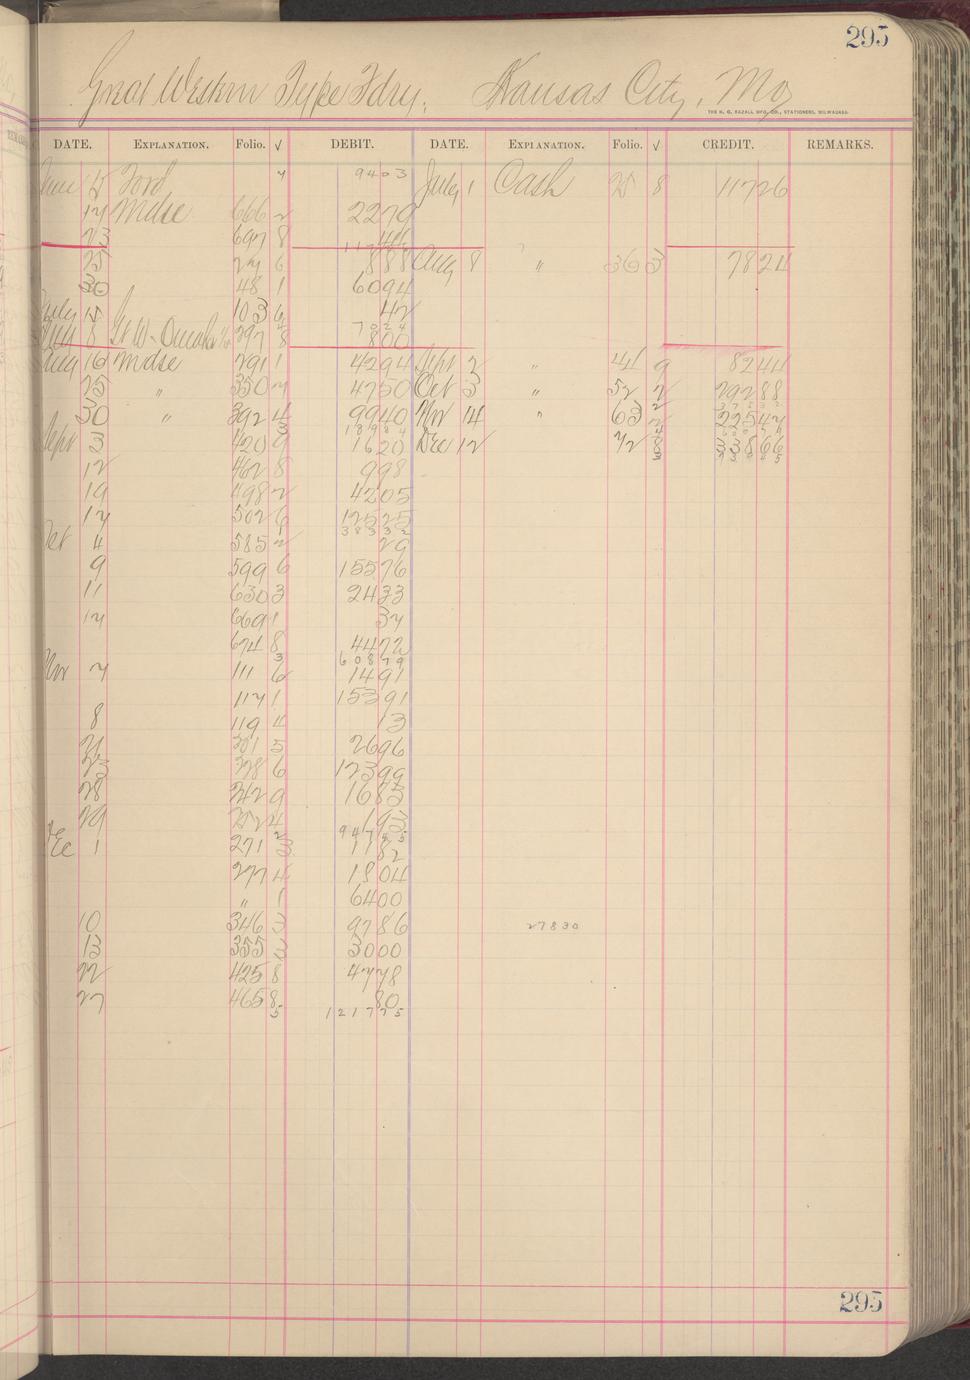 295
Great Western Type Fdry. Kansas City, Mo
THE H. G. RAZALL MFG. CO., STATIONERS, MILWAUKEE.
DATE. EXPLANATION. Folio. √ DEBIT. DATE. EXPLANATION. Folio. √ CREDIT. REMARKS.
June 15 Ford 7 9403 July 1 Cash 25 8 11726
17 Mdse 666 2 2279
23 697 8 44
25 27 6 888 Aug 8 " 363 3 7824
30 48 1 6094
July 15 103 6 42
7024
Aug 8 Gt W. Omaha 297 8 800
Aug 16 Mdse 291 1 4294 Sept 2 " 41 9 8244
25 " 350 7 4750 Oct 3 " 52 2 29288
30 " 392 4 9940 Nov 14 " 63 2 22547
18984
Sept 3 420 9 1620 Dec 12 72 8 33866
12 462 8 998
19 498 2 4205
17 502 6 12525
38332
Oct 4 585 2 29
9 599 6 15576
11 630 3 2433
17 669 1 37
674 8 4472
60879
Nov 7 111 6 1491
117 1 15391
8 119 4 13
21 201 5 2696
23 228 6 12399
28 242 9 1683
29 252 4 193
94755
Dec 1 271 3 1182
277 4 1804
" 1 6400
10 346 3 9786 27830
13 355 3 3000
22 425 8 4778
27 465 8 80
5 121775
295